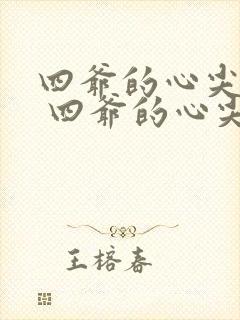 四爷的心尖
四爷的心尖
王榕春